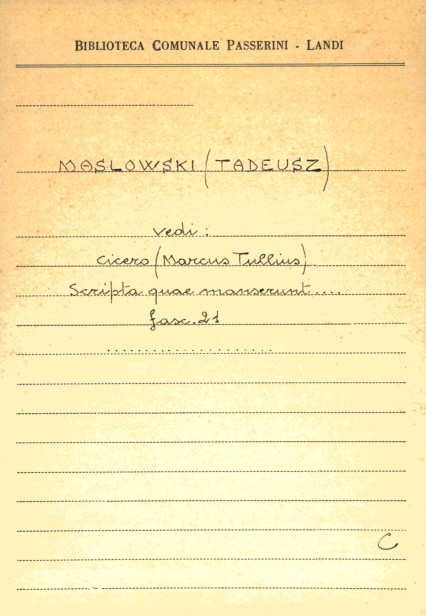 BIBLIOTECA COMUNALE PASSERINI - LANDI
MASLOWSKI (TADEUSZ)
vedi :
Cicero (Marcus Tullius)
Scripta quae manserunt....
fasc. 21
......................
C